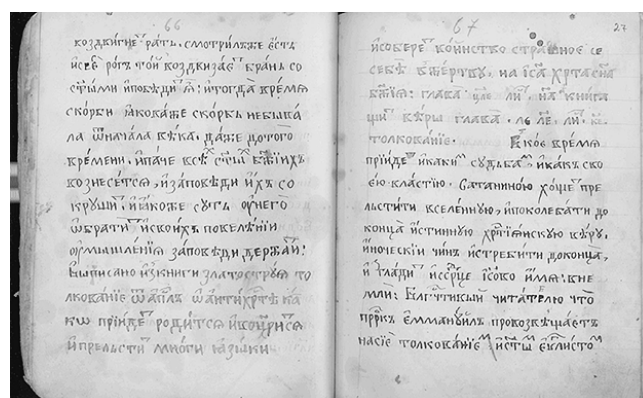 66
воздвигнеⷮ рать, смотрилъже єсть
и сеѐ рогъ той воздвизаєⷮ брань со
ст҃ыми и повѣдиⷮ ꙗ҆: и тогда время
скорби ꙗкоже скорбь небыва
ла ѿначала вѣка, даже дотого
времени, и паче всѣⷯ ст҃ыⷯ бж҃їихъ
вознесетсѧ, и заповѣди ихъ со
крушиⷮ, ꙗкоже суть ѹ него
ѡбратиⷮ и своихъ повелѣнїи
ѹмышленїѧ заповѣди держаⷮ:
Выписано изкниги златострꙋѧ то
лкованїє ѿ апⷭ҇лъ ѡ антихрⷭ҇тѣ ка
кѡ прїидеⷮ родитсѧ
и прельстиⷮ многи ꙗзыки
67
27
и собереⷮ воинство страшное се
себѣ в жертву, на іс҃а хрⷭ҇та сн҃а
бж҃їѧ: глава лиⷭ҇ книга
вѣры глава лиⷭ҇
толкованїе. Ꙗкоє времѧ
прїидеⷮ и какиⷨ судьбаⷨ и какъ сво
єю властїю. Сатаниною хощеⷮ пре
льстити вселенную, и поколебати до
конца истинную хрⷭ҇тїѧнскую вѣру,
иноческїи чинъ истребити доконца,
и глⷣадиⷮ исѡво имѧ: вне
мли: Блгⷪ҇чтивый читателю что
прⷪ҇ркъ еммануилъ провозвѣщаєтъ
насїє толкованїєⷨ и ст҃ыⷨ еѵⷢ҇листоⷨ